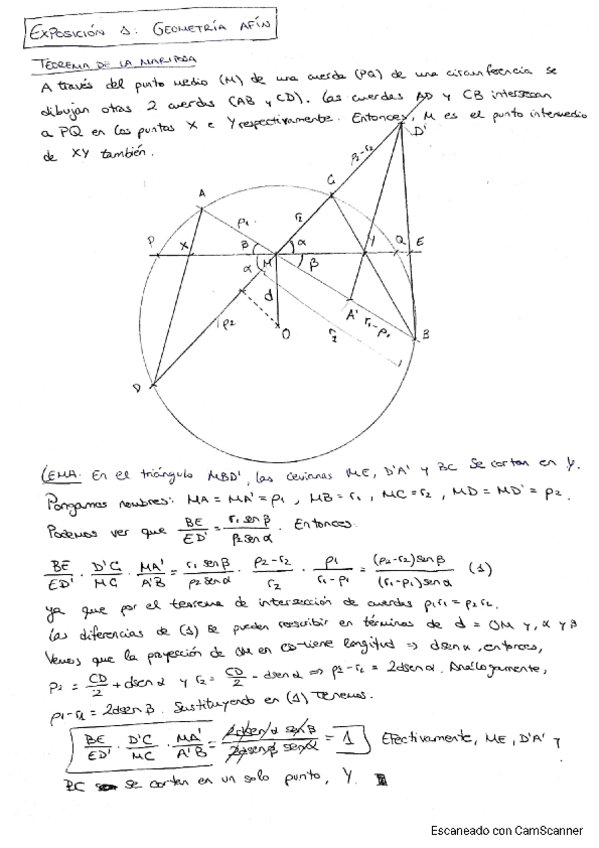 EXPOSICIÓN 1: GEOMETRÍA AFÍN
TEOREMA DE LA MARIPOSA
A través del punto medio (M) de una cuerda (PQ) de una circunferencia se
dibujan otras 2 cuerdas (AB y CD). Las cuerdas AD y CB intersecan
a PQ en los puntos X e Y respectivamente. Entonces, M es el punto intermedio
de XY también.
D'
ρ2-r2
C
A
ρ1
r2
P
X
β
α
Y
Q
E
α
M
β
d
A'
r1-ρ1
B
ρ2
O
r2
D
LEMA: En el triángulo MBD', las cevianas ME, D'A' y BC se cortan en Y.
Pongamos nombres: MA = MA' = ρ1, MB = r1, MC = r2, MD = MD' = ρ2.
Podemos ver que BE/ED' = r1 sen β/ρ2 sen α. Entonces:
BE/ED' · D'C/MC · MA'/A'B = r1 sen β/ρ2 sen α · ρ2-r2/r2 · ρ1/r1-ρ1 = (ρ2-r2) sen β/(r1-ρ1) sen α (1)
ya que por el teorema de intersección de cuerdas ρ1r1 = ρ2r2.
Las diferencias de (1) se pueden reescribir en términos de d = OM y, α y β
Vemos que la proyección de OM en CD tiene longitud ⇒ d sen α, entonces,
ρ2 = CD/2 + d sen α y r2 = CD/2 - d sen α ⇒ ρ2-r2 = 2d sen α. Análogamente,
ρ1-r1 = 2d sen β. Sustituyendo en (1) tenemos.
BE/ED' · D'C/MC · MA'/A'B = 2d sen α sen β/2d sen β sen α = 1 Efectivamente, ME, D'A' y
BC se cortan en un solo punto, Y.
Escaneado con CamScanner